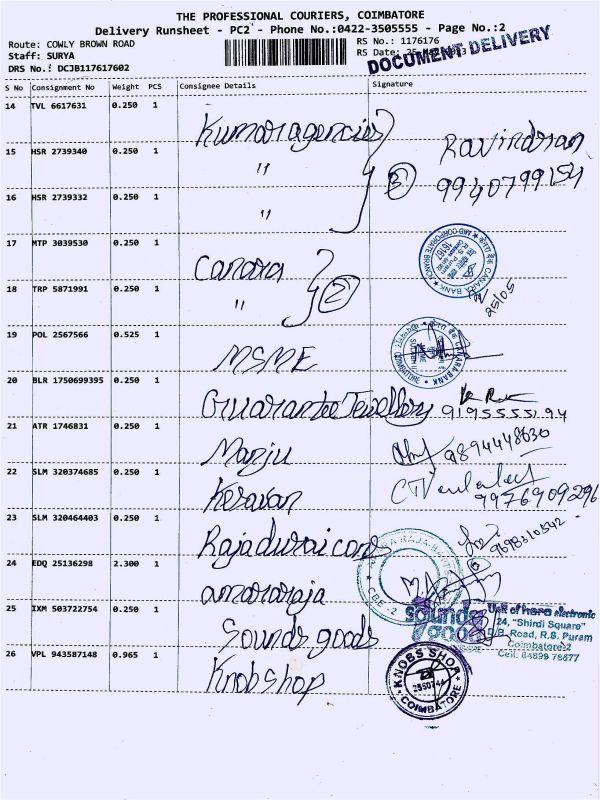 THE PROFESSIONAL COURIERS, COIMBATORE
Delivery Runsheet - PC2 - Phone No.:0422-3505555 - Page No.:2
Route: COWLY BROWN ROAD
RS No.: 1176176
Staff: SURYA
RS Date:
DOCUMENT DELIVERY
DRS No.: DCJB117617602
S No Consignment No Weight PCS Consignee Details Signature
14 TVL 6617631 0.250 1 Kumaragencies
15 HSR 2739340 0.250 1 "
Ravindran
16 HSR 2739332 0.250 1 "
3
9940799154
17 MTP 3039530 0.250 1 Canara
CANARA BANK
MID CORPORATE BRANCH
18 TRP 5871991 0.250 1 "
2
25/05
19 POL 2567566 0.525 1 MSME
CANARA BANK
20 BLR 1750699395 0.250 1 Guarantee Jewellery
9195555194
21 ATR 1746831 0.250 1 Manju
9894448630
22 SLM 320374685 0.250 1 Keravan
9976909296
23 SLM 320464403 0.250 1 Rajadurai cones
9698310542
24 EDQ 25136298 2.300 1 amararaja
CBE 2
25 IXM 503722754 0.250 1 Sounds goods
sounds good
Unit of hero electronic
24, "Shirdi Square"
D.B. Road, R.S. Puram
Coimbatore-2
Cell: 84899 78677
26 VPL 943587148 0.965 1 Knobshop
KNOBS SHOP
COIMBATORE